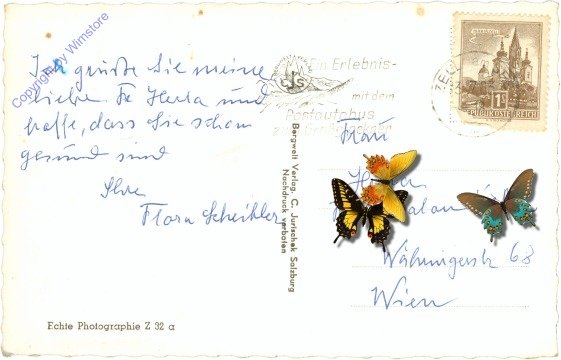 Copyright by Wimstore
Ich grüße Sie meine
liebe Fr Herta und
hoffe, dass Sie schon
gesund sind
Ihre
Flora
Echte Photographie Z 32 a
Bergwelt Verlag, C. Jurischek Salzburg
Nachdruck verboten
Ein Erlebnis-
mit dem
Postautobus
REPUBLIK ÖSTERREICH
Frau
Währingerstr 68
Wien